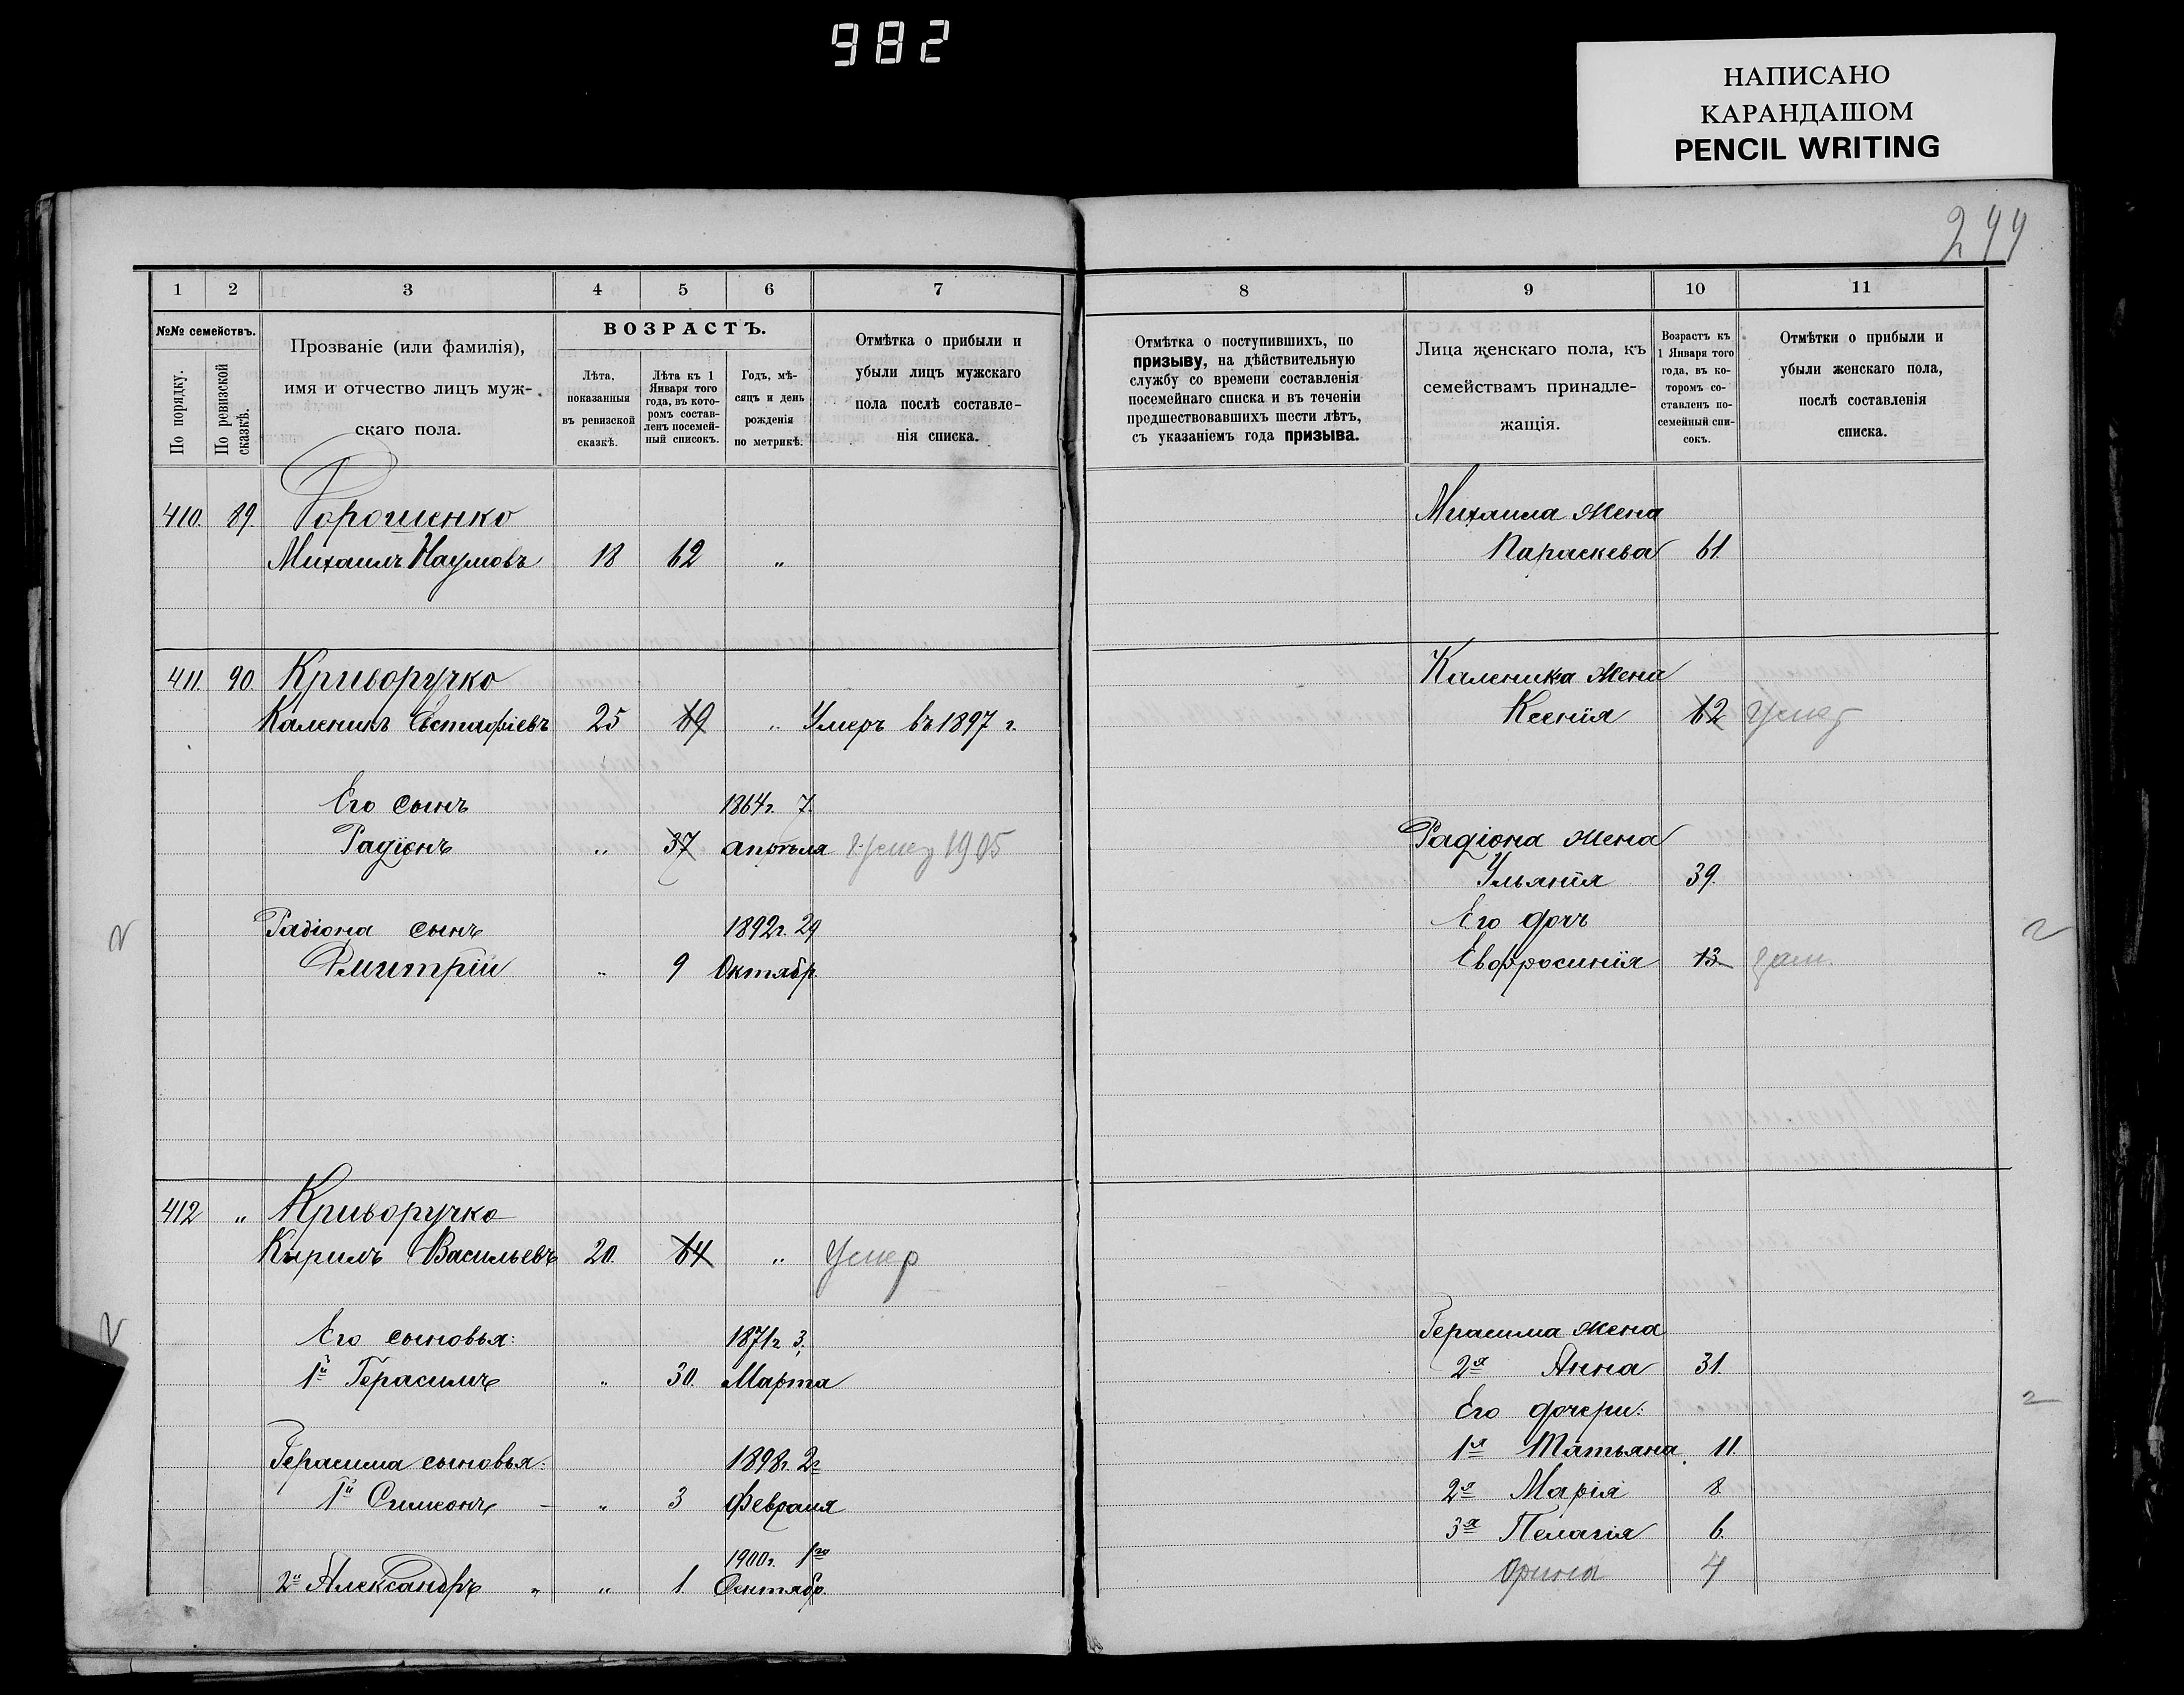 982
НАПИСАНО
КАРАНДАШОМ
PENCIL WRITING
1 2 3 4 5 6 7
№№ семействъ.
По порядку.
По ревизской сказкѣ.
Прозваніе (или фамилія),
имя и отчество лицъ муж-
скаго пола.
ВОЗРАСТЪ.
Лѣта,
показанныя
въ ревизской
сказкѣ.
Лѣта къ 1
Января того
года, въ кото-
ромъ состав-
ленъ посемей-
ный списокъ.
Годъ, мѣ-
сяцъ и день
рожденія
по метрикѣ.
Отмѣтка о прибыли и
убыли лицъ мужскаго
пола послѣ составле-
нія списка.
410. 89. Дорошенко
Михаилъ Наумовъ 18 62 „
411. 90. Криворучко
Каленикъ Евстафіевъ 25 69 „ Умеръ въ 1897 г.
Его сынъ 1864 г. 7.
Радіонъ „ 37 апрѣля Умер 1905
Радіона сынъ 1892 г. 29
Дмитрій „ 9 Октябр.
412 „ Криворучко
Кирилъ Васильевъ 20. 64 „ Умер
Его сыновья: 1871 г. 3.
1й Герасимъ „ 30. Марта
Герасима сыновья: 1898 г. 2г
1й Симеонъ - „ 3 Февраля
1900 г. 1го
2й Александръ „ „ 1. Сентябр.
8 9 10 11
Отмѣтка о поступившихъ, по
призыву, на дѣйствительную
службу со времени составленія
посемейнаго списка и въ теченіи
предшествовавшихъ шести лѣтъ,
съ указаніемъ года призыва.
Лица женскаго пола, къ
семействамъ принадле-
жащія.
Возрастъ къ
1 Января того
года, въ ко-
торомъ со-
ставленъ по-
семейный спи-
сокъ.
Отмѣтки о прибыли и
убыли женскаго пола,
послѣ составленія
списка.
Михаила жена
Параскева 61.
Каленика жена
Ксенія 62 Умер
Радіона жена
Ульянія 39.
Его дочь
Евфросинія 13 зам.
Герасима жена
2я Анна 31.
Его дочери:
1я Татьяна 11.
2я Марія 8
3я Пелагія 6.
Орина 4